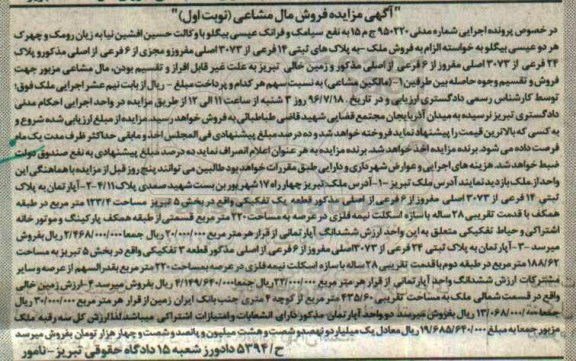 "آگهی مزایده فروش مال مشاعی (نوبت اول)"
در خصوص پرونده اجرایی شماره مدنی ۹۵۰۲۲۰ ج م ۱۵ به نفع سیامک و فرانک عیسی بیگلو با وکالت حسین افشین نیا به زیان رومک و چهرک
هر دو عیسی بیگلو به خواسته الزام به فروش ملک -به پلاک های ثبتی ۱۲ فرعی از ۳۰۷۳ اصلی مفروز و مجزی از ۶ فرعی از اصلی مذکور و پلاک
۲۴ فرعی از ۳۰۷۳ اصلی مفروز از ۶ فرعی از اصلی مذکور و زمین خالی تبریز به علت غیر قابل افراز و تقسیم بودن، مال مشاعی مزبور جهت
فروش و تقسیم وجوه حاصله بین طرفین (-مالکین مشاعی) به نسبت سهم هر کدام و پرداخت مبلغ - ریال از بابت نیم عشر اجرایی ملک فوق؛
توسط کارشناس رسمی دادگستری ارزیابی و در تاریخ ۹۶/۷/۱۸ روز ۳ شنبه از ساعت ۱۱ الی ۱۲ از طریق مزایده در واحد اجرایی احکام مدنی
دادگستری تبریز نرسیده به میدان آذربایجان مجتمع قضایی شهید قاضی طباطبائی به فروش خواهد رسید. مزایده از مبلغ ارزیابی شده شروع و
به کسی که بالاترین قیمت را پیشنهاد نماید فروخته خواهد شد و ده درصد مبلغ پیشنهادی فی المجلس اخذ و مابقی حداکثر ظرف مدت یک ماه
فرصت داده می شود. برنده مزایده اخذ خواهد شد. برنده مزایده به هر عنوان اعلام انصراف نماید ده درصد مبلغ پیشنهادی به نفع صندوق دولت
ضبط خواهد شد. هزینه های اجرایی و عوارض شهرداری و دارایی طبق مقررات خواهد بود طالبین می توانند پنج روز قبل از مزایده با هماهنگی این
واحد از ملک بازدید نمایند آدرس ملک تبریز -۱- آدرس ملک تبریز چهار راه ۱۷ شهریور بن بست شهید صمدی پلاک ۴/۱۱ -۲- آپارتمان به پلاک
ثبتی ۱۴ فرعی از ۳۰۷۳ اصلی مفروز از ۶ فرعی از اصلی مذکور قطعه یک تفکیکی واقع در بخش ۵ تبریز مساحت ۱۲۳/۴ متر مربع در طبقه
همکف با قدمت تقریبی ۲۸ ساله با سازه اسکلت نیمه فلزی در عرصه به مساحت ۲۲۰ متر مربع قسمتی از طبقه همکف پارکینگ و موتور خانه
اشتراکی و حیاط تفکیکی متعلق به این واحد ارزش ششدانگ آپارتمانی از قرار هر متر مربع ۲۰/۰۰۰/۰۰۰ ریال جمعا ۲/۴۶۸/۰۰۰/۰۰۰ ریال بفروش
میرسد -۳- آپارتمان به پلاک ثبتی ۲۴ فرعی از ۳۰۷۳ اصلی مفروز از ۶ فرعی از اصلی مذکور قطعه ۳ تفکیکی واقع در بخش ۵ تبریز به مساحت
۱۸۸/۶۲ متر مربع در طبقه دوم با قدمت تقریبی ۲۸ ساله با سازه اسکلت نیمه فلزی در عرصه بمساحت ۲۲۰ متر مربع بقدر السهم از عرصه و سایر
مشترکات ارزش ششدانگ واحد آپارتمانی از قرار هر متر مربع ۲۲/۰۰۰/۰۰۰ ریال جمعا ۴/۱۴۹/۶۴۰/۰۰۰ ریال بفروش میرسد ۴- ارزش زمین خالی
واقع در قسمت شمالی ملک به مساحت تقریبی ۴۳۵/۶۰ متر مربع از کوچه ۴ متری جنب بانک ایران زمین از قرار هر متر مربع ۳۰/۰۰۰/۰۰۰ ریال
جمعا ۱۳/۰۶۸/۰۰۰/۰۰۰ ریال بفروش میرسد دو واحد آپارتمان مذکور دارای انشعابات و امتیازات اشتراکی میباشد لذا ارزش کل سه رقبه ملک
مزبور جمعا به مبلغ ۱۹/۶۸۵/۶۴۰/۰۰۰ ریال معادل یک میلیارد و نهصد و شصت و هشت میلیون و پانصد و شصت و چهار هزار تومان بفروش میرسد
ح/۵۳۹۴ دادورز شعبه ۱۵ دادگاه حقوقی تبریز- نامور